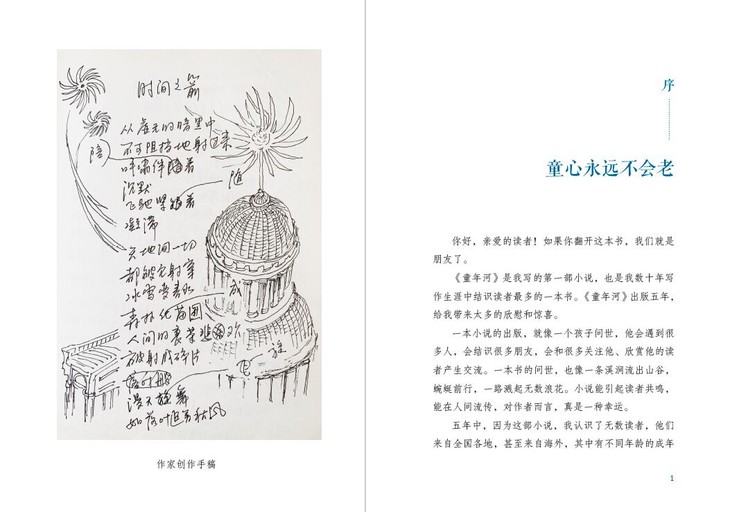 时间之箭
从虚无的暗黑中
不可阻挡地射过来
呼啸伴随着
沉默
飞驰紧随着
凝滞
天地间一切
都被它射穿
冰雪
森林
人间的
被射成碎片
漫天旋舞
如落叶追逐秋风
作家创作手稿
序
童心永远不会老
你好，亲爱的读者！如果你翻开这本书，我们就是
朋友了。
《童年河》是我写的第一部小说，也是我数十年写
作生涯中结识读者最多的一本书。《童年河》出版五年，
给我带来太多的欣慰和惊喜。
一本小说的出版，就像一个孩子问世，他会遇到很
多人，会结识很多朋友，会和很多关注他、欣赏他的读
者产生交流。一本书的问世，也像一条溪涧流出山谷，
蜿蜒前行，一路溅起无数浪花。小说能引起读者共鸣，
能在人间流传，对作者而言，真是一种幸运。
五年中，因为这部小说，我认识了无数读者，他们
来自全国各地，甚至来自海外，其中有不同年龄的成年
1